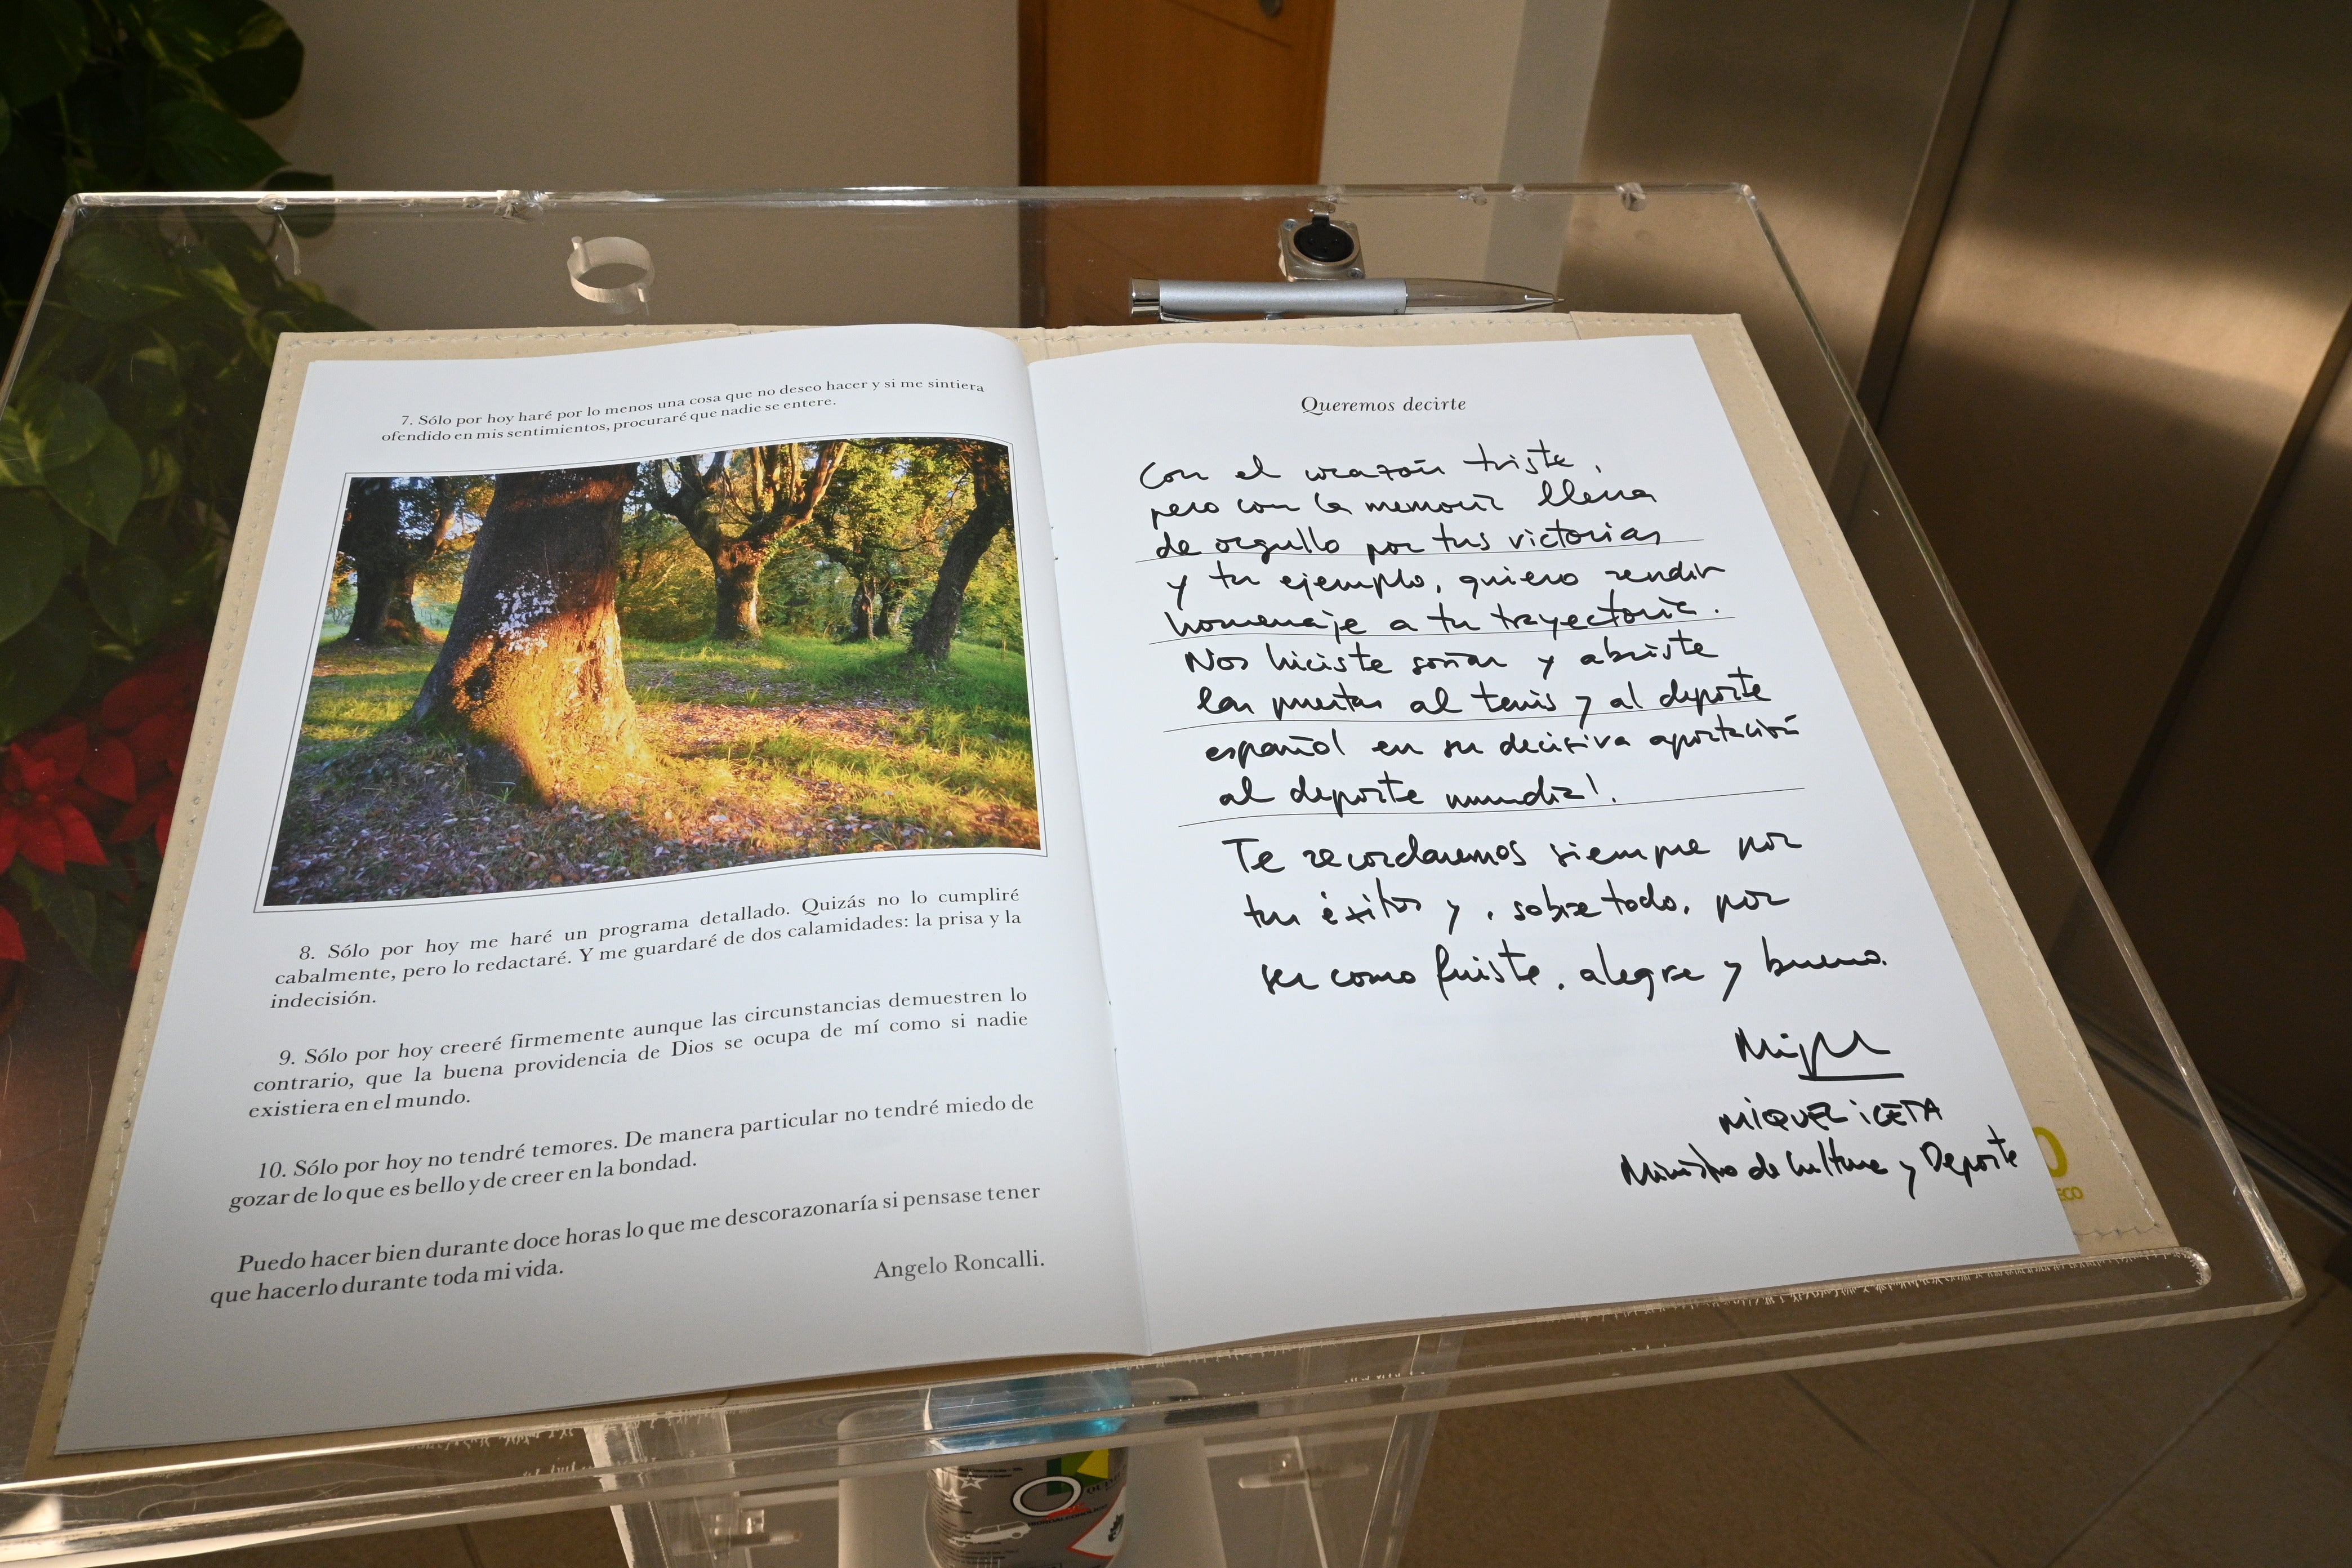 7. Sólo por hoy haré por lo menos una cosa que no deseo hacer y si me sintiera
ofendido en mis sentimientos, procuraré que nadie se entere.
8. Sólo por hoy me haré un programa detallado. Quizás no lo cumpliré
cabalmente, pero lo redactaré. Y me guardaré de dos calamidades: la prisa y la
indecisión.
9. Sólo por hoy creeré firmemente aunque las circunstancias demuestren lo
contrario, que la buena providencia de Dios se ocupa de mí como si nadie
existiera en el mundo.
10. Sólo por hoy no tendré temores. De manera particular no tendré miedo de
gozar de lo que es bello y de creer en la bondad.
Puedo hacer bien durante doce horas lo que me descorazonaría si pensase tener
que hacerlo durante toda mi vida.
Angelo Roncalli.
Queremos decirte
Con el corazón triste,
pero con la memoria llena
de orgullo por tus victorias
y tu ejemplo, quiero rendir
homenaje a tu trayectoria.
Nos hiciste soñar y abriste
las puertas al tenis y al deporte
español en su decisiva aportación
al deporte mundial.
Te recordaremos siempre por
tus éxitos y, sobre todo, por
ser como fuiste, alegre y bueno.
Miquel
MIQUEL ICETA
Ministro de Cultura y Deporte